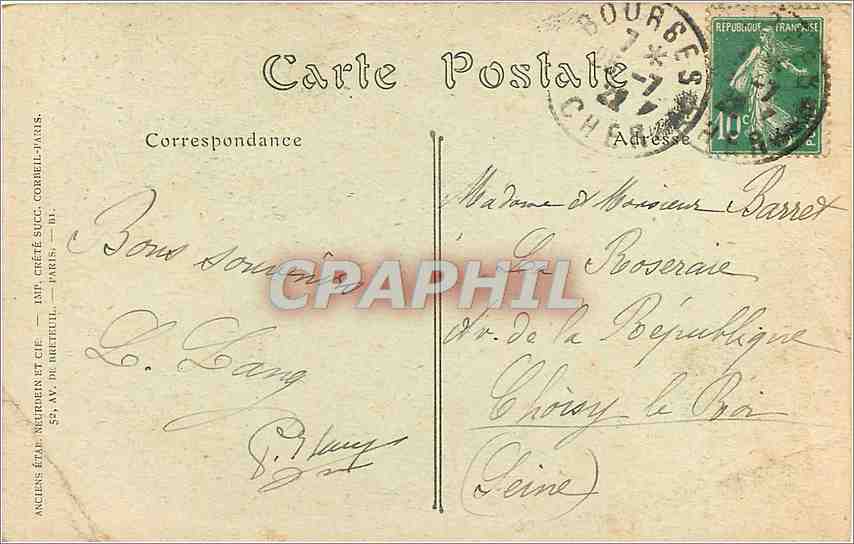 Carte Postale
Correspondance
Adresse
BOURGES
CHER
7 *
-7
RÉPUBLIQUE FRANÇAISE
10c
Bons souvenirs
L. Lang
Madame et Monsieur Barret
La Roseraie
Av. de la République
Choisy le Roi
(Seine)
CPAPHIL
ANCIENS ÉTAB. NEURDEIN ET CIE. — IMP. CRÉTÉ SUCC. CORBEIL-PARIS.
52, AV. DE BRETEUIL. — PARIS. — B1.